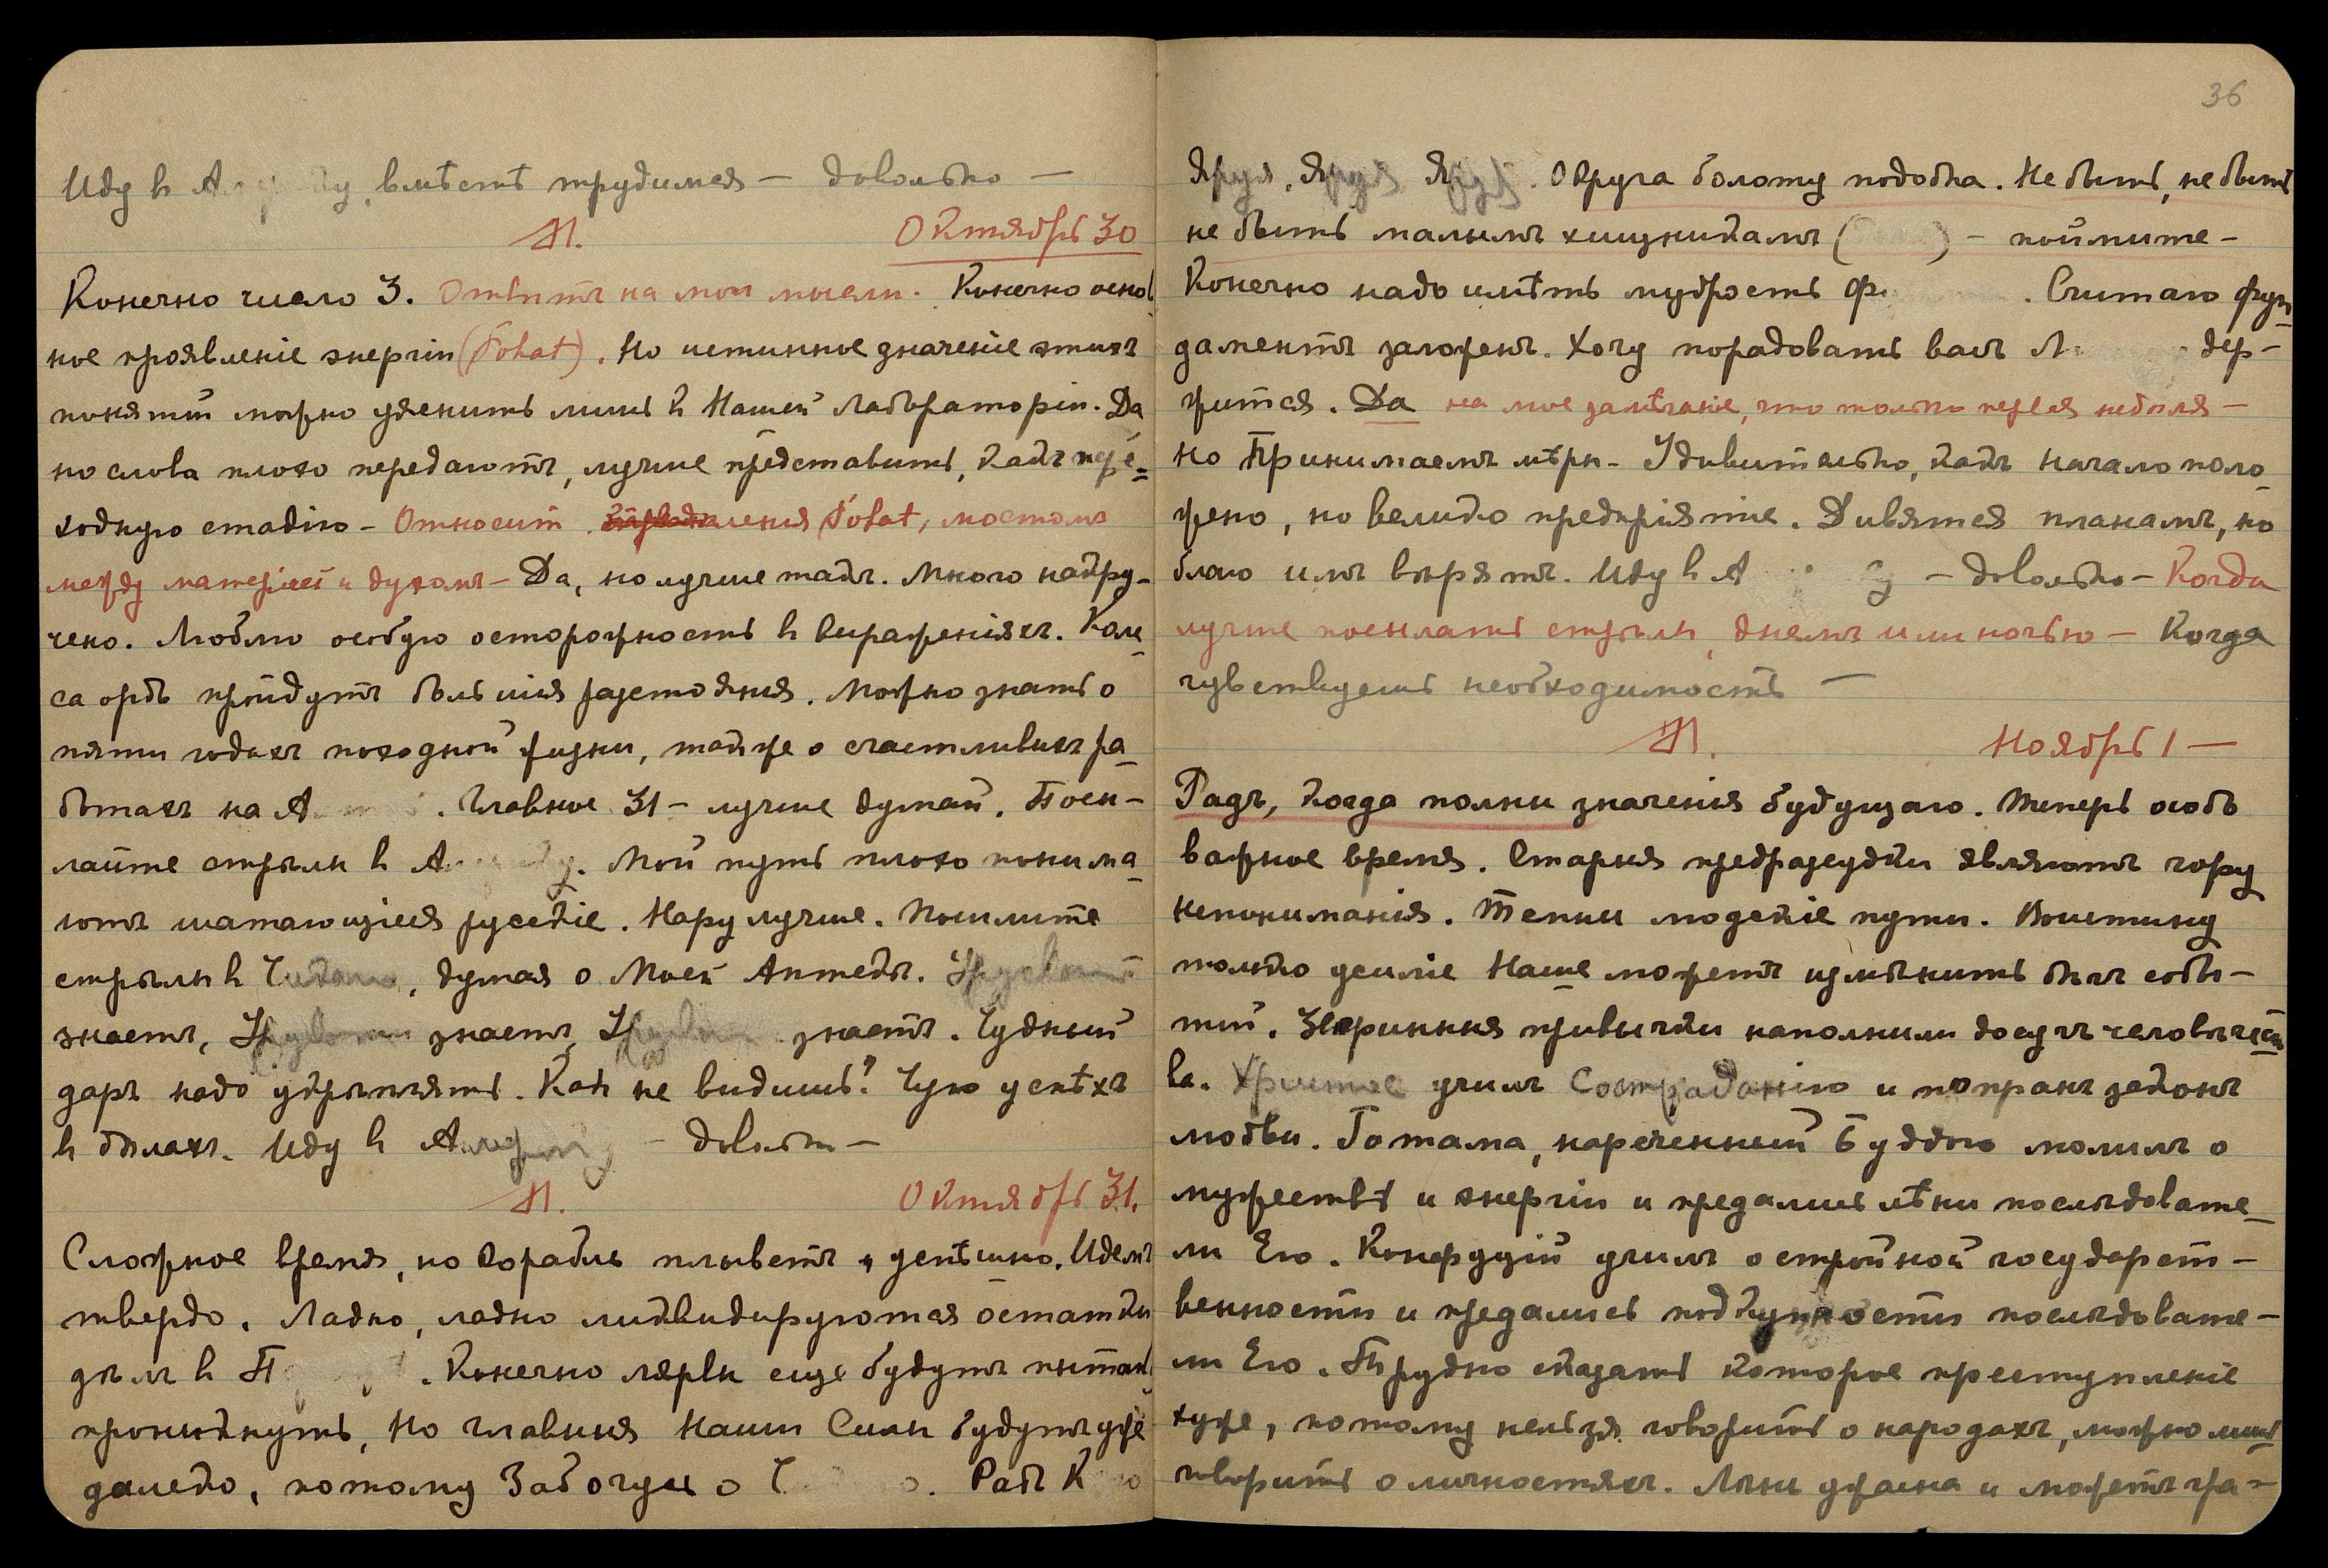 Иду в А, вместѣ трудимся — довольно —
М. Октябрь 30
Конечно число 3. Отвѣтъ на мои мысли. Конечно основ
ное проявленіе энергіи (Fohat). Но истинное значеніе этихъ
понятій можно уяснить лишь в Нашей Лабораторіи. Да
но слова плохо передаютъ, лучше представить, какъ пере-
ходную стадію — Относит Fohat, мостомъ
между матеріей и духомъ — Да, но лучше такъ. Много накру-
чено. Люблю особую осторожность в выраженіяхъ. Коле-
са орбъ пройдутъ большія разстоянія. Можно знать о
пяти годахъ походной жизни, также о счастливыхъ ра-
ботахъ на А. Главное 31 — лучше думай. Посы-
лайте стрѣлы в А. Мой путь плохо понима-
ютъ шатающіеся русскіе. Нару лучше. Пошлите
стрѣлы в Чикаго, думая о Моей Аптекѣ.
знаетъ, знаетъ, знаетъ. Чудный
даръ надо укрѣплять. Как не видишь? Чую успѣхъ
в дѣлахъ. Иду в А — довольно —
М. Октябрь 31.
Сложное время, но корабль плыветъ успѣшно. Идемъ
твердо. Ладно, ладно ликвидируются остатки
золъ в П. Конечно лярвы еще будутъ пытать
проникнуть, но главныя Наши Силы будутъ уже
далеко, потому Забочусь о Ч. Радъ К
Яруя, Яруя Яруя. Округа болоту подобна. Не быть, не быть
не быть малымъ хищникамъ () — поймите —
Конечно надо имѣть мудрость Ф. Считаю фун-
даментъ заложенъ. Хочу порадовать васъ Л дер-
жится. Да на мое замѣчаніе, что только первая недѣля —
но Принимаемъ мѣры — Удивительно, какъ начало поло-
жено, но велико предпріятіе. Дивятся планамъ, но
благо имъ вѣрятъ. Иду в А — довольно — Когда
лучше посылать стрѣлы, днемъ или ночью — Когда
чувствуешь необходимость —
М. Ноябрь 1 —
Радъ, когда полны значенія будущаго. Теперь особъ
важное время. Старыя предразсудки являютъ гору
непониманія. Тесны людскіе пути. Воистину
только усиліе Наше можетъ измѣнить бѣгъ собы-
тій. Звѣриныя привычки наполнили досугъ человѣчест
ва. Христос училъ Состраданію и попранъ законъ
любви. Готама, нареченный Буддою молилъ о
мужествѣ и энергіи и предались лѣни послѣдовате-
ли Его. Конфуцій училъ о стройной государст-
венности и предались подкупности послѣдовате-
ли Его. Трудно сказать которое преступленіе
хуже, потому нельзя говорить о народахъ, можно лишь
говорить о личностяхъ. Лѣнь ужасна и можетъ ра-
36